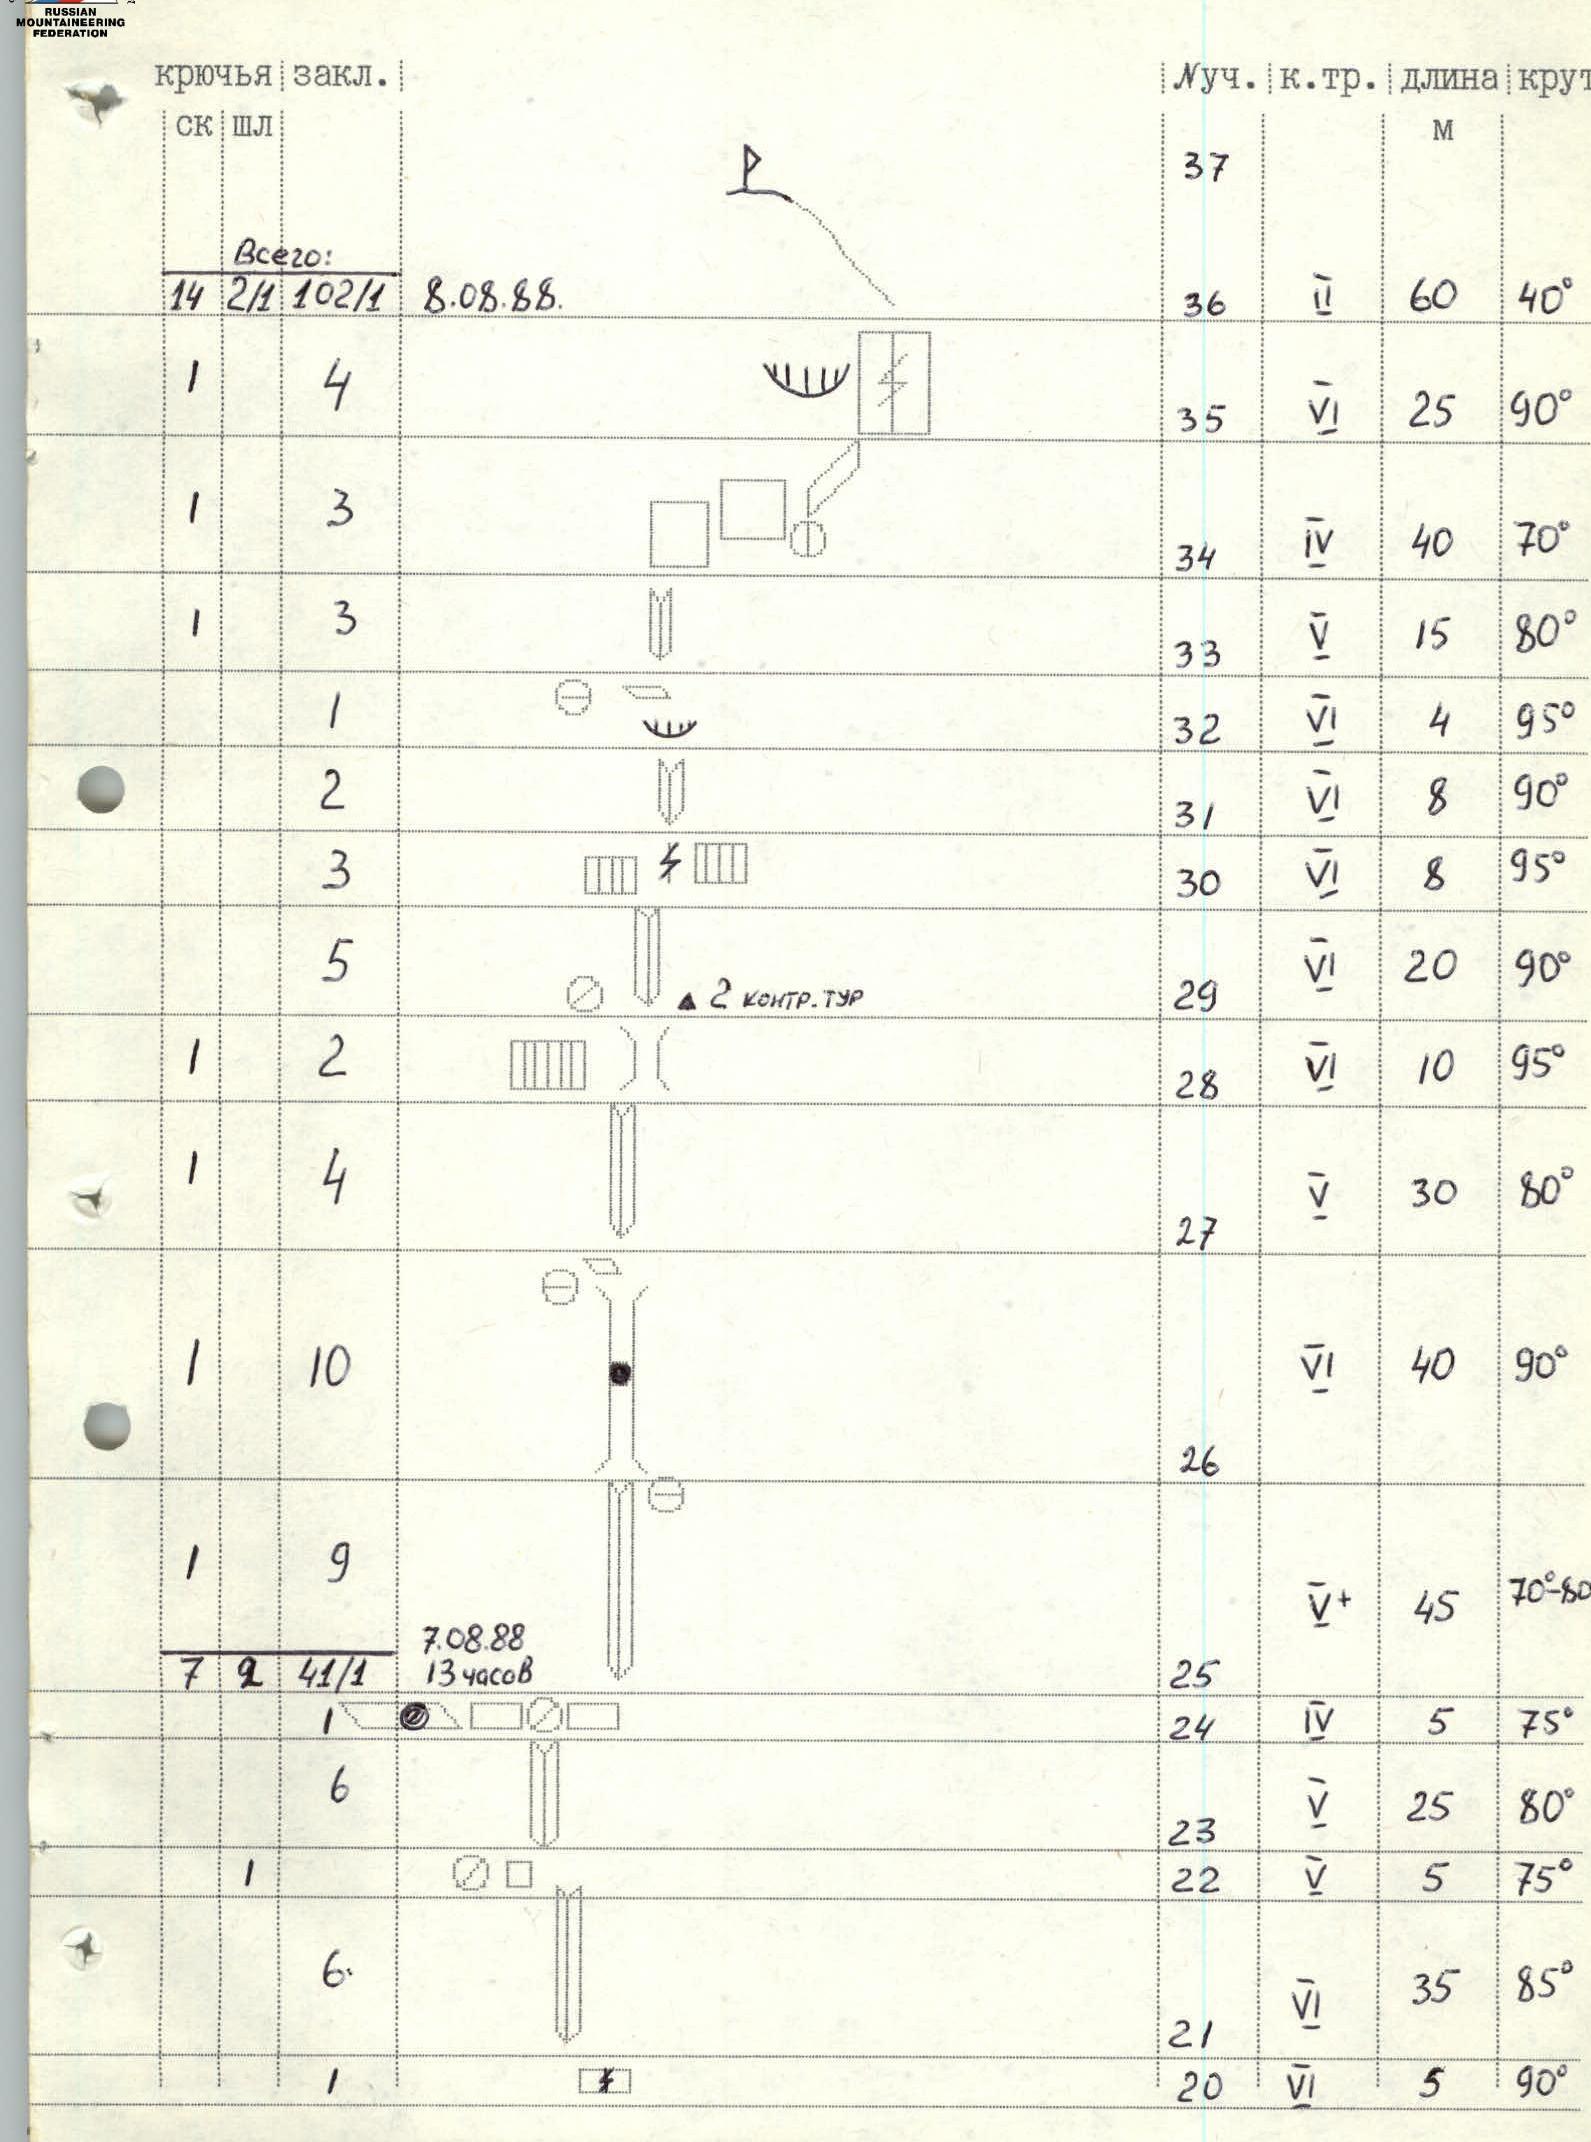 RUSSIAN
MOUNTAINEERING
FEDERATION
крючья закл. №уч. к.тр. длина крут
ск шл м
37
Всего:
14 2/1 102/1 8.08.88. 36 II 60 40°
1 4 35 VI 25 90°
1 3 34 IV 40 70°
1 3 33 V 15 80°
1 32 VI 4 95°
2 31 VI 8 90°
3 30 VI 8 95°
5 29 VI 20 90°
2 контр. тур
1 2 28 VI 10 95°
1 4 27 V 30 80°
1 10 26 VI 40 90°
1 9 V+ 45 70°-80
7.08.88
7 2 41/1 13 часов 25
1 24 IV 5 75°
6 23 V 25 80°
1 22 V 5 75°
6 21 VI 35 85°
1 20 VI 5 90°